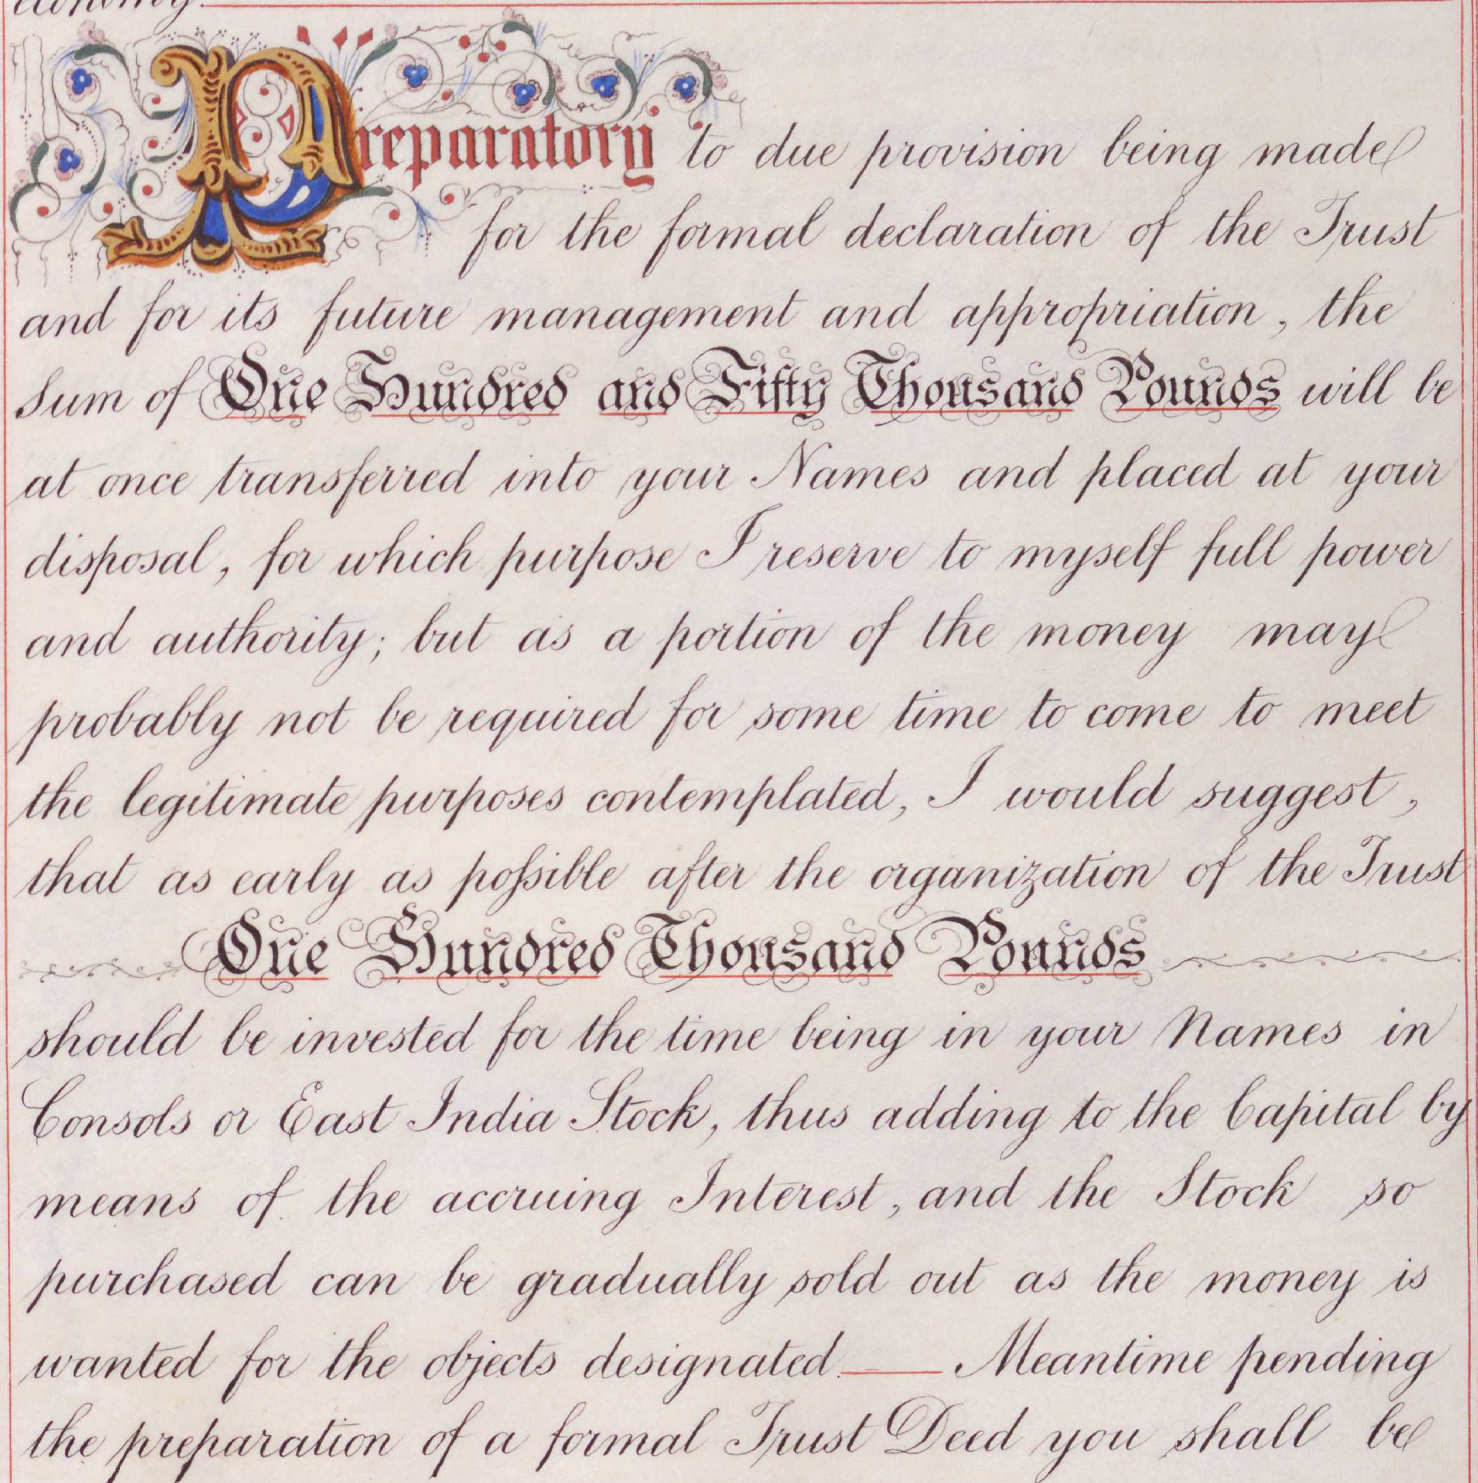 economy.
Preparatory to due provision being made
for the formal declaration of the Trust
and for its future management and appropriation, the
sum of One Hundred and Fifty Thousand Pounds will be
at once transferred into your Names and placed at your
disposal, for which purpose I reserve to myself full power
and authority; but as a portion of the money may
probably not be required for some time to come to meet
the legitimate purposes contemplated, I would suggest,
that as early as poſsible after the organization of the Trust
One Hundred Thousand Pounds
should be invested for the time being in your Names in
Consols or East India Stock, thus adding to the Capital by
means of the accruing Interest, and the Stock so
purchased can be gradually sold out as the money is
wanted for the objects designated. — Meantime pending
the preparation of a formal Trust Deed you shall be